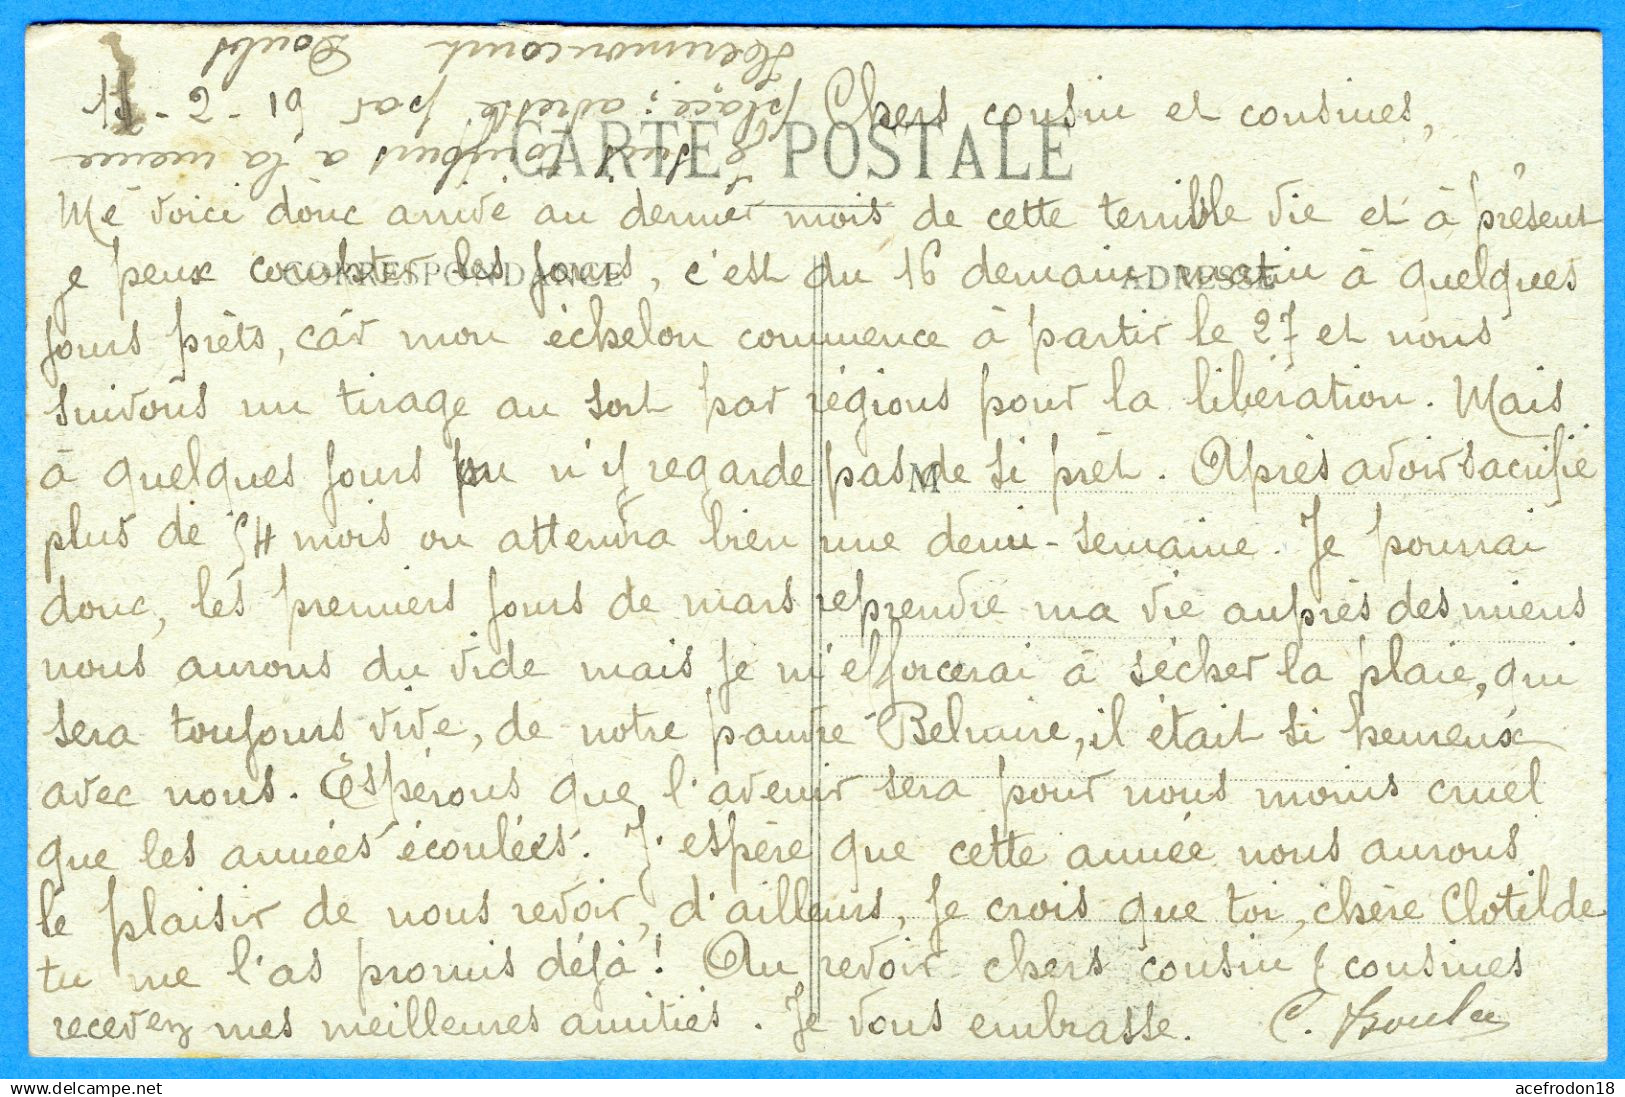 15-2-19
Chers cousin et cousines,
CARTE POSTALE
Me voici donc arrivé au dernier mois de cette terrible vie et à présent
je peux compter les jours, c'est du 16 demain matin à quelques
CORRESPONDANCE
ADRESSE
jours prêts, car mon échelon commence à partir le 27 et nous
suivons un tirage au sort par régions pour la libération. Mais
à quelques jours on n'y regarde pas de si prêt. Après avoir sacrifié
M
plus de 54 mois on attendra bien une demi-semaine. Je pourrai
donc, les premiers jours de mars reprendre ma vie auprès des miens
nous aurons du vide mais je m'efforcerai à sécher la plaie, qui
sera toujours vive, de notre pauvre , il était si heureux
avec nous. Espérons que l'avenir sera pour nous moins cruel
que les années écoulées. J'espère que cette année nous aurons
le plaisir de nous revoir, d'ailleurs, je crois que toi, chère Clotilde
tu me l'as promis déjà! Au revoir chers cousin & cousines
recevez mes meilleures amitiés. Je vous embrasse. C.
Je suis toujours à la même
place; adresse par
Hérimoncourt Doubs
acefrodon18